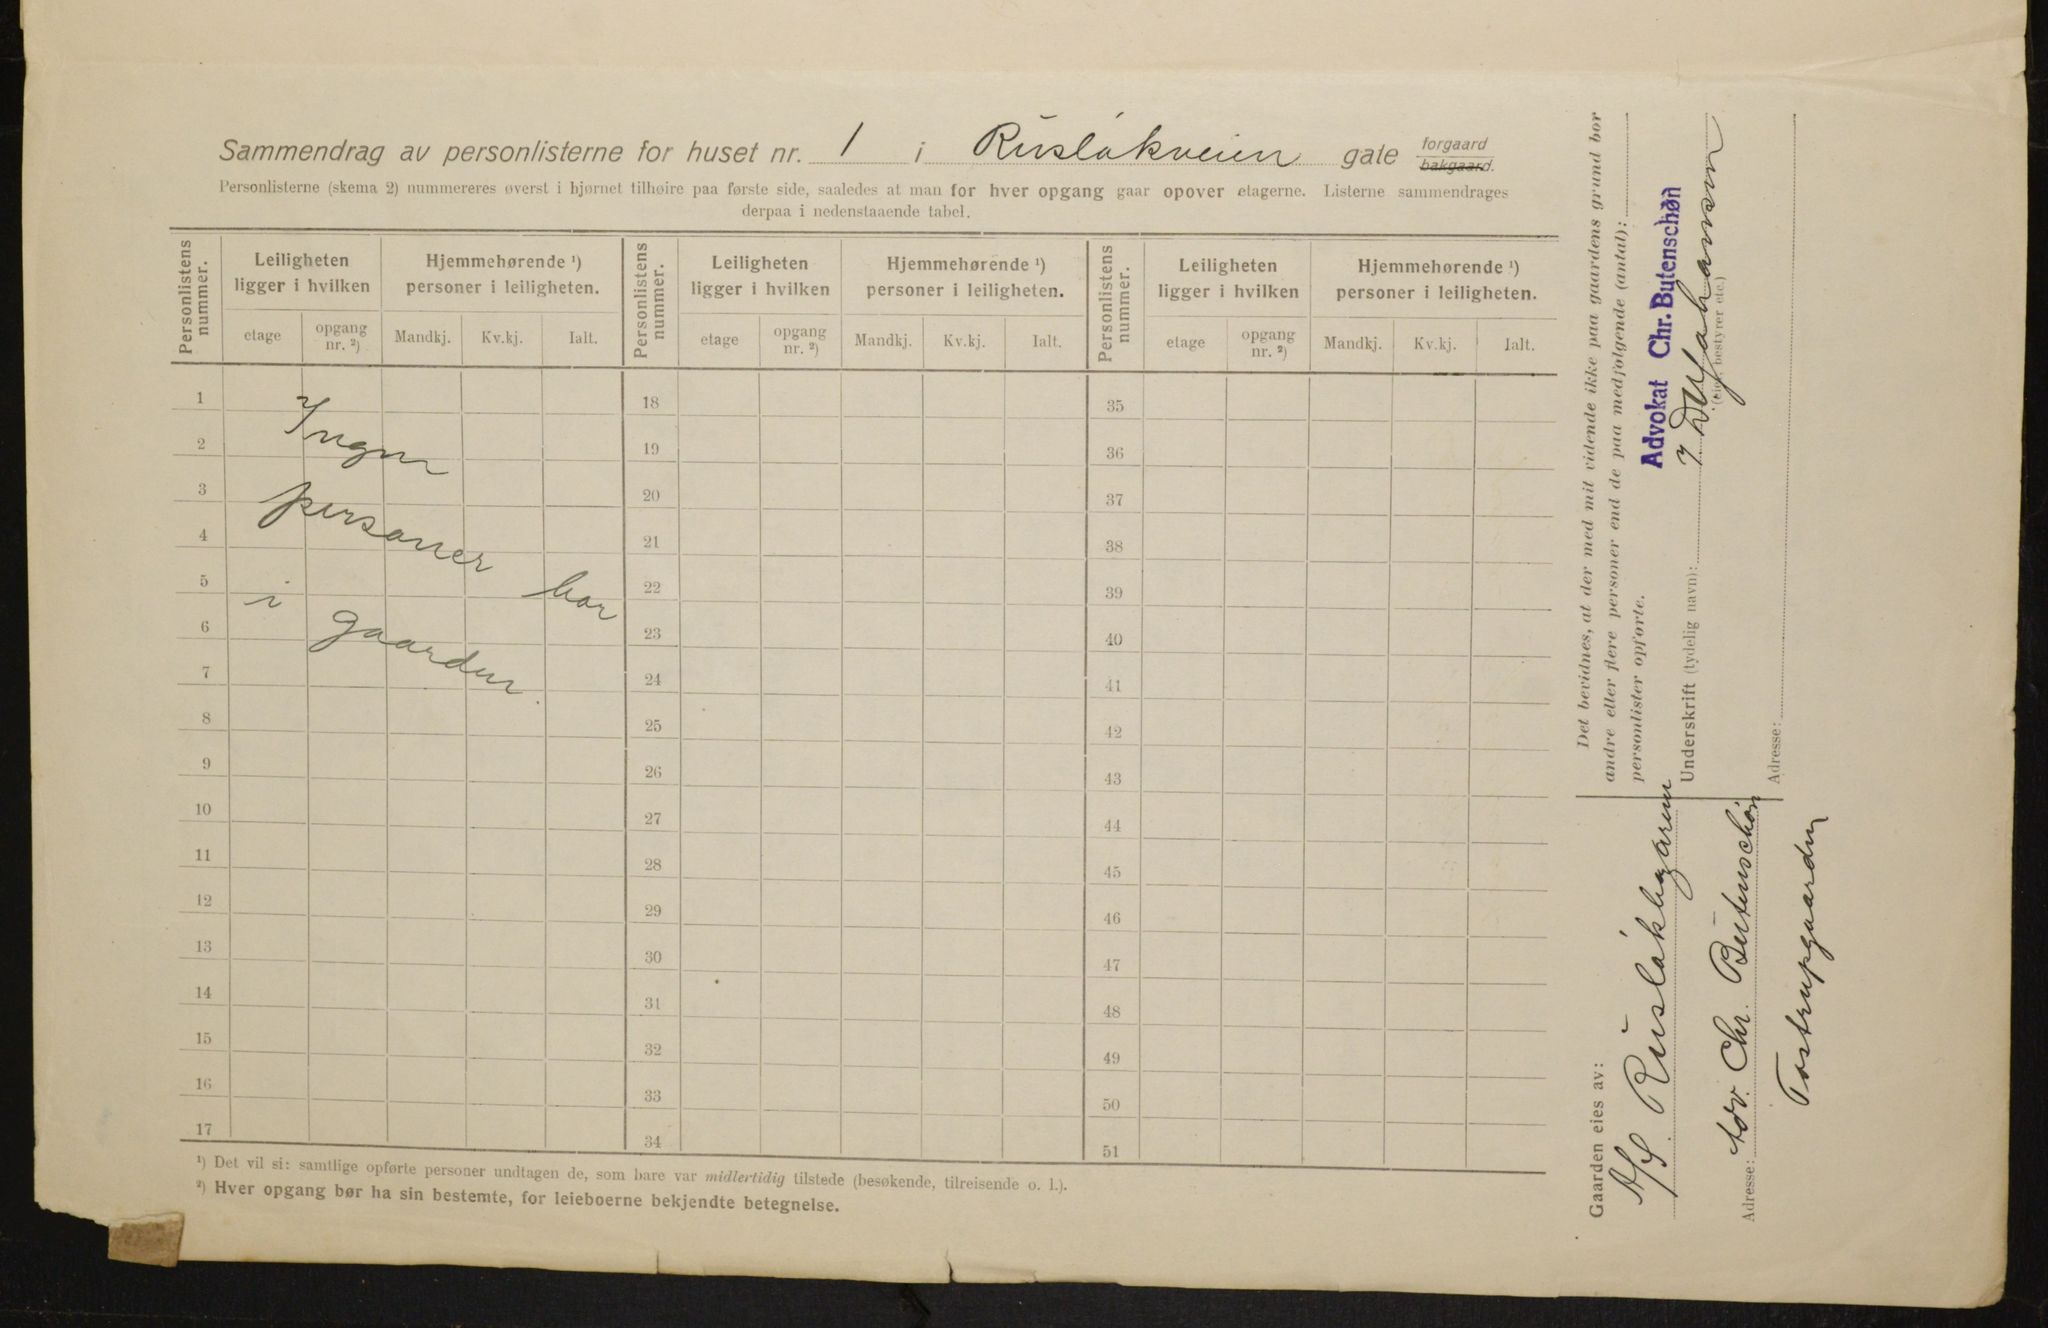 Sammendrag av personlisterne for huset nr. 1 i Ruslökveien gate forgaard bakgaard.
Personlisterne (skema 2) nummereres øverst i hjørnet tilhøire paa første side, saaledes at man for hver opgang gaar opover etagerne. Listerne sammendrages
derpaa i nedenstaaende tabel.
Personlistens nummer. Leiligheten ligger i hvilken Hjemmehørende ¹) personer i leiligheten. Personlistens nummer. Leiligheten ligger i hvilken Hjemmehørende ¹) personer i leiligheten. Personlistens nummer. Leiligheten ligger i hvilken Hjemmehørende ¹) personer i leiligheten.
etage opgang nr. ²) Mandkj. Kv.kj. Ialt. etage opgang nr. ²) Mandkj. Kv.kj. Ialt. etage opgang nr. ²) Mandkj. Kv.kj. Ialt.
1 18 35
Ingen
2 19 36
3 20 37
personer bor
4 21 38
5 22 39
i gaarden.
6 23 40
7 24 41
8 25 42
9 26 43
10 27 44
11 28 45
12 29 46
13 30 47
14 31 48
15 32 49
16 33 50
17 34 51
¹) Det vil si: samtlige opførte personer undtagen de, som bare var midlertidig tilstede (besøkende, tilreisende o. l.).
²) Hver opgang bør ha sin bestemte, for leieboerne bekjendte betegnelse.
Det bevidnes, at der med mit vidende ikke paa gaardens grund bor
andre eller flere personer end de paa medfølgende (antal):
personlister opførte.
Advokat Chr. Butenschøn
Underskrift (tydelig navn):
(eier, bestyrer etc.)
Adresse:
Gaarden eies av:
A/S Ruslökbazaren
Adresse: Adv. Chr. Butenschön
Tostrupgaarden